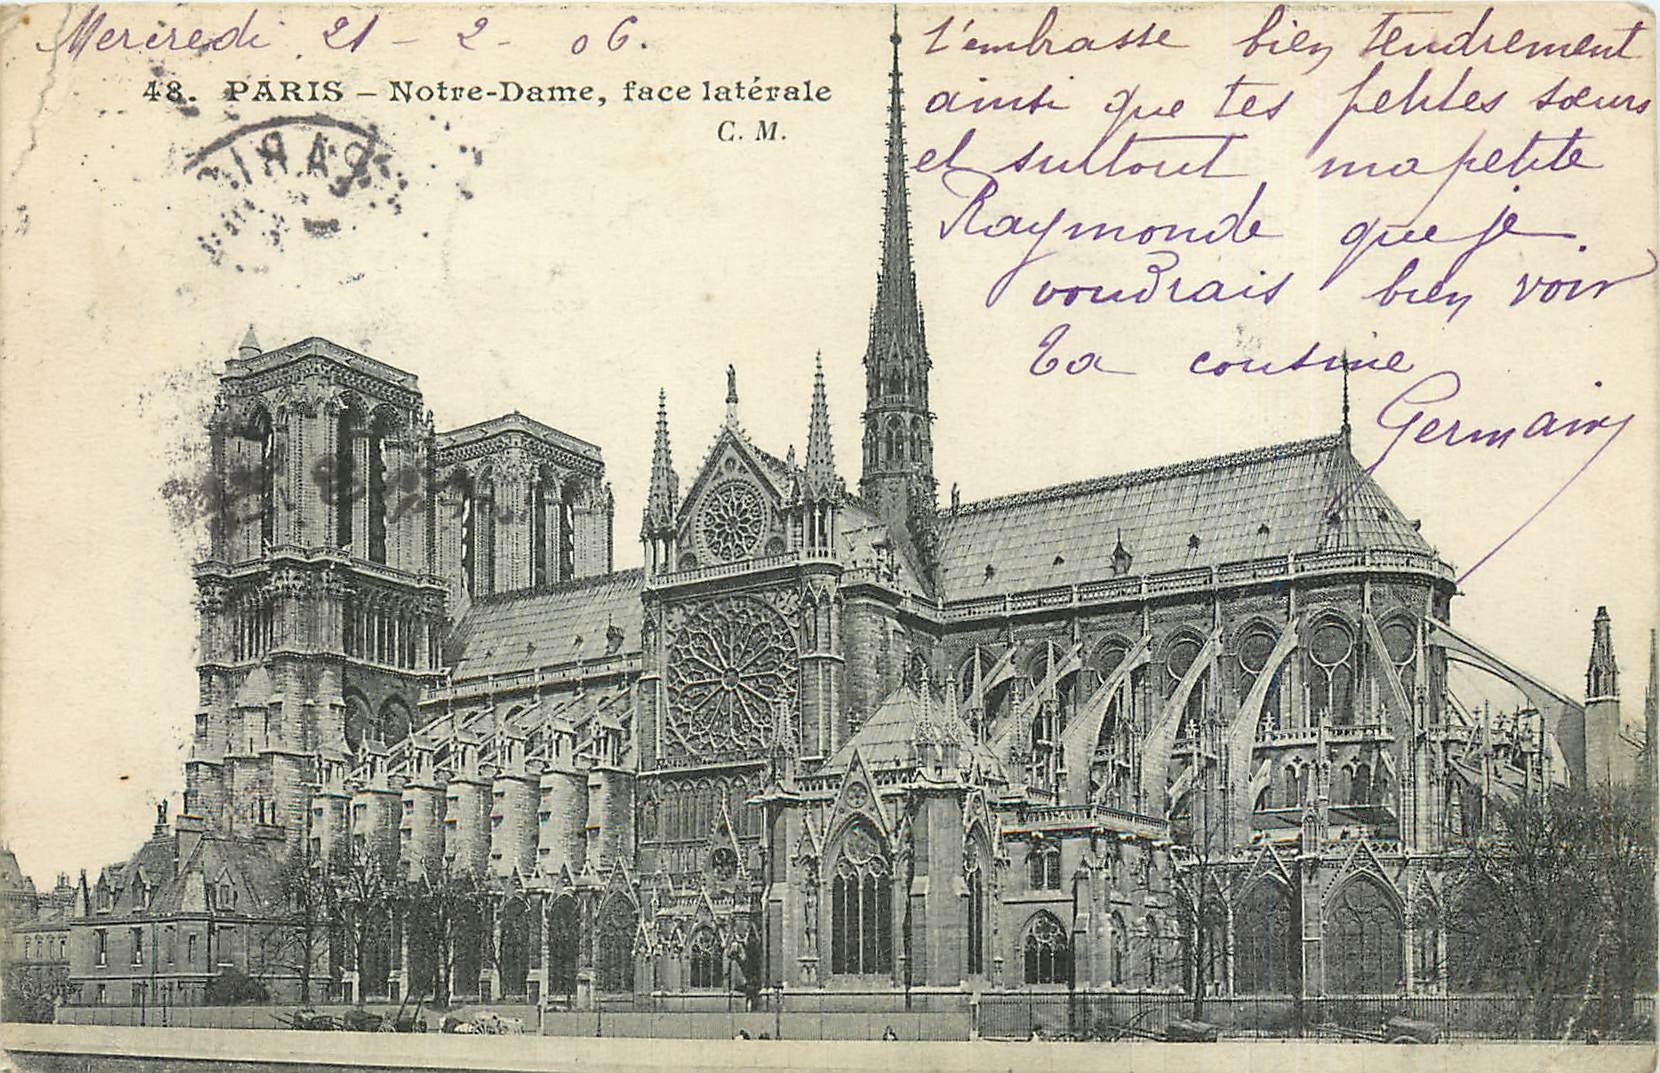 Mercredi 21 - 2 - 06.
48. PARIS – Notre-Dame, face latérale
C. M.
PARIS
t'embrasse bien tendrement
ainsi que tes petites sœurs
et surtout ma petite
Raymonde que je
voudrais bien voir
Ta cousine
Germaine